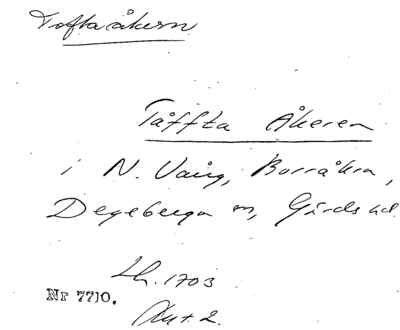 Toftaåkern
Tåffta Åkeren
i N. Vång, Borråkra,
Degeberga sn, Gärds hd.
Lh. 1703
Nr 7710.
Akt 2.